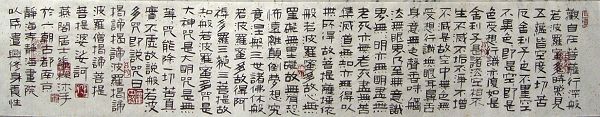 觀自在菩薩行深般
若波羅蜜多時照見
五蘊皆空度一切苦
厄舍利子色不異空空
不異色色即是空空即是
色受想行識亦復如是
舍利子是諸法空相不
生不滅不垢不淨不增
不減是故空中無色無受
想行識無眼耳鼻舌
身意無色聲香味觸
法無眼界乃至無意識
界無無明亦無無明盡
乃至無老死亦無老死盡
無苦集滅道無智亦無得以
無所得故菩提薩埵依
般若波羅蜜多故心無
罣礙無罣礙故無有恐
怖遠離顛倒夢想究
竟涅槃三世諸佛依般
若波羅蜜多故得阿
耨多羅三藐三菩提故
知般若波羅蜜多是
大神咒是大明咒是無上咒是無
等等咒能除一切苦真
實不虛故說般若波羅蜜
多咒即說咒曰
揭諦揭諦波羅揭諦
波羅僧揭諦菩提
薩婆訶
居士 沐手
於 古都南京
靜海寺靜海書院
修身養性